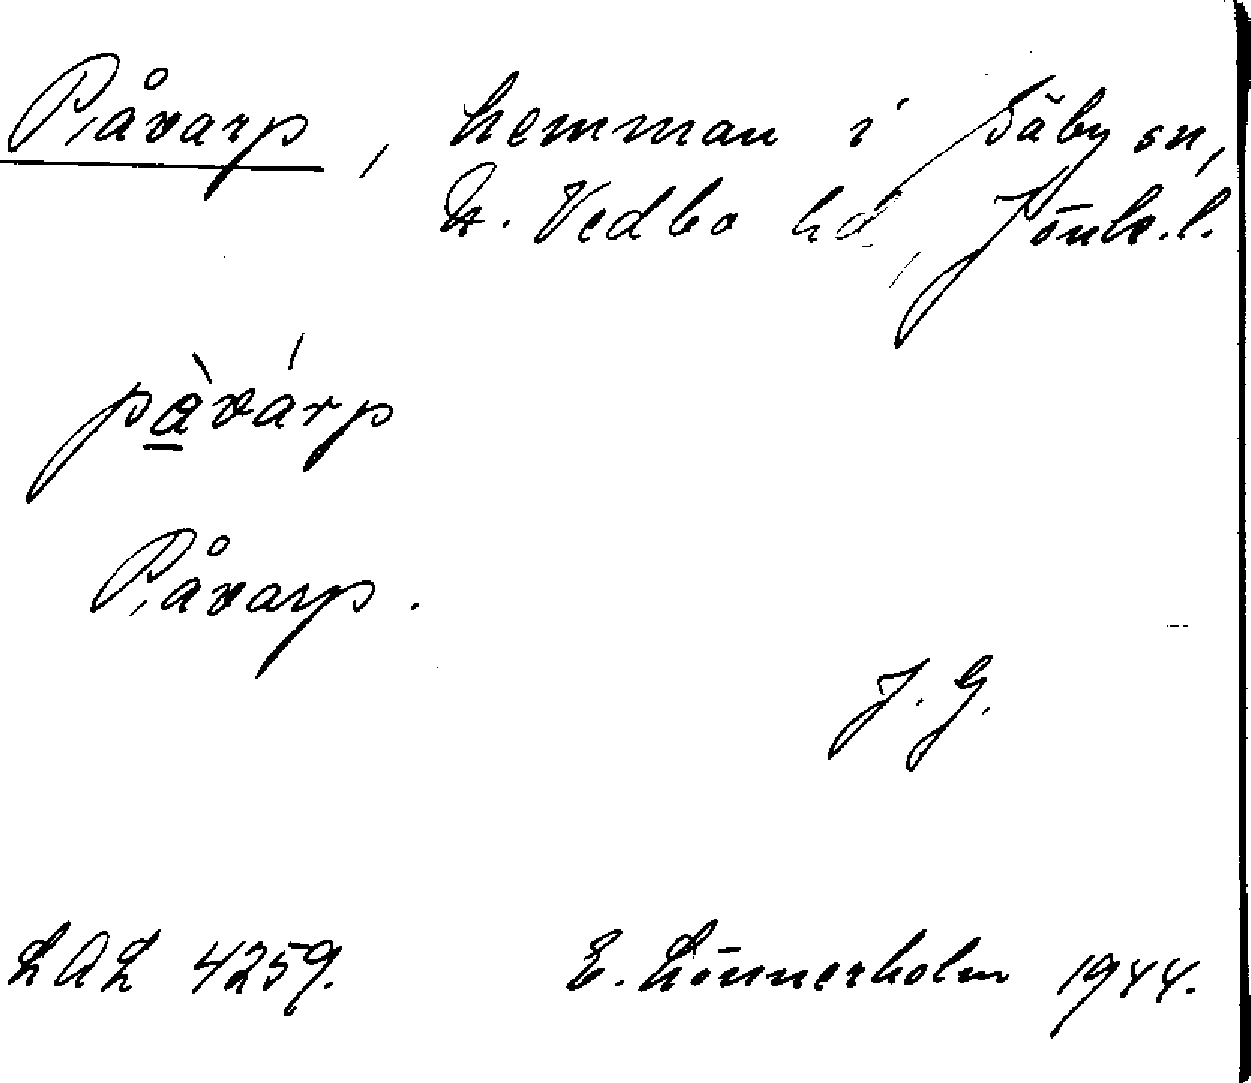 Påvarp, hemman i Säby sn,
N. Vedbo hd, Jönk. l.
pà̲várp
Påvarp.
J. G.
LAL 4259. E. Lönnerholm 1944.